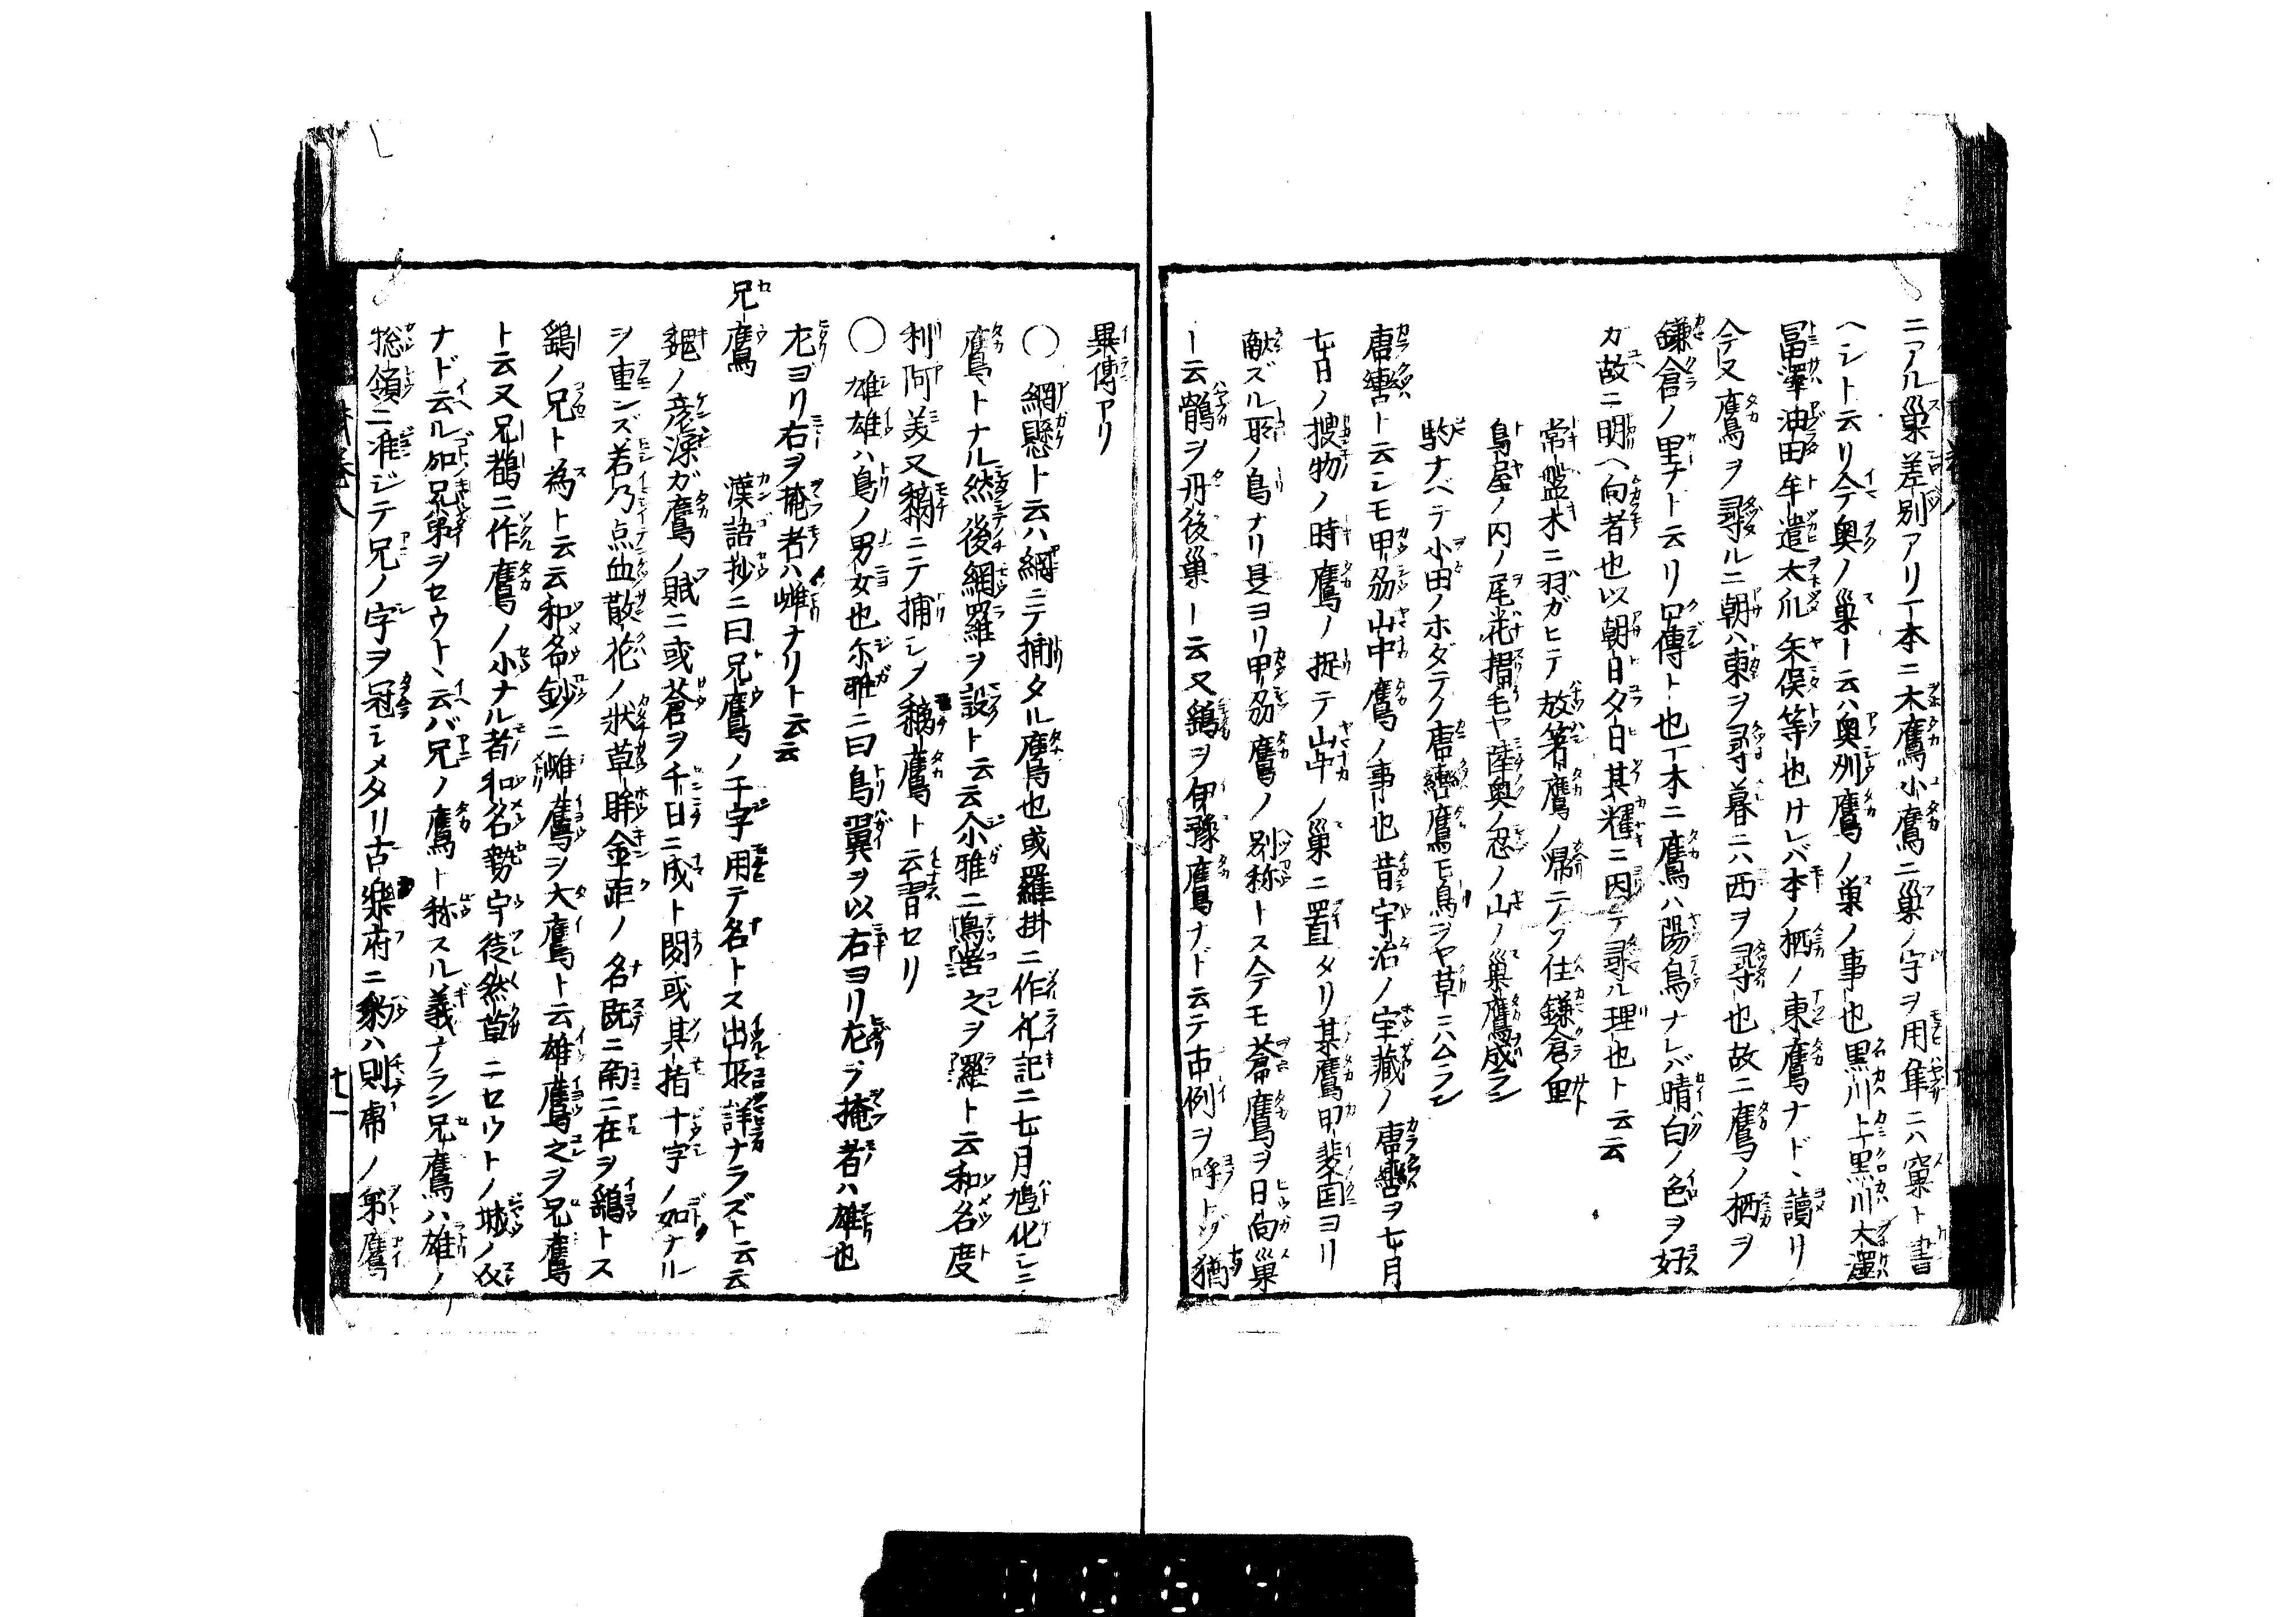 ニアル巣差別アリ一本ニ大鷹小鷹ニ巣ノ字ヲ用隼ニハ窠ト書
ヘシト云リ今奥ノ巣ト云ハ奥州鷹ノ巣ノ事也黒川上黒川大澤
冨澤油田牟遣太爪矢俣等也ケレバ本ノ栖ノ東鷹ナド讀リ
今又鷹ヲ尋ルニ朝ハ東ヲ尋暮ニハ西ヲ尋也故ニ鷹ノ栖ヲ
鎌倉ノ里ナト云リ口傳ト也一本ニ鷹ハ陽鳥ナレバ晴白ノ色ヲ好
カ故ニ明ヘ向者也以朝日夕日其輝ニ因テ尋ル理也ト云云
常盤木ニ羽ガヒテ放箸鷹ノ帰テソ住鎌倉ノ里
鳥屋ノ内ノ尾花摺毛ヤ陸奥ノ忍ノ山ノ巣鷹成ラシ
駒ナベテ小田ノホダテノ唐轡鷹モ鳥ヲヤ草ニハムラン
唐轡ト云シモ甲刕山中鷹ノ事也昔宇治ノ宝藏ノ唐轡ヲ七月
七日ノ捜物ノ時鷹ノ捉テ山中ノ巣ニ置タリ其鷹甲斐国ヨリ
献ズル所ノ鳥ナリ是ヨリ甲刕鷹ノ別称トス今モ蒼鷹ヲ日向巣
ト云鶻ヲ丹後巣ト云又鷂ヲ伊豫鷹ナド云テ古例ヲ呼トゾ猶
異傳アリ
〇 網懸ト云ハ網ニテ捕タル鷹也或羅掛ニ作礼記ニ七月鳩化シテ
鷹トナル然後網羅ヲ設ト云云尓雅ニ鳥罟之ヲ羅ト云和名度
利阿美又黐ニテ捕シヲ黐鷹ト云習セリ
〇 雄雌ハ鳥ノ男女也尓雅ニ曰鳥翼ヲ以右ヨリ左ヲ掩者ハ雄也
左ヨリ右ヲ掩者ハ雌ナリト云云
兄鷹 漢語抄ニ曰兄鷹ノ二字用テ名トス出所詳ナラズト云云
魏ノ彦深ガ鷹ノ賦ニ或蒼ヲ千日ニ成ト閲或其指十字ノ如ナル
ヲ重ンズ若乃点血散花ノ状草眸金距ノ名既ニ南ニ在ヲ鷂トス
鷂ノ兄ト為ト云云和名鈔ニ雌鷹ヲ大鷹ト云雄鷹之ヲ兄鷹
ト云又兄鷂ニ作鷹ノ小ナル者和名勢宇徒然草ニセウトノ城ノ
ナド云ル如兄弟ヲセウトヽ云バ兄ノ鷹ト称スル義ナラン兄鷹ハ雄ノ
総領ニ准ジテ兄ノ字ヲ冠シメタリ古樂府ニ豹ハ則虎ノ弟鷹